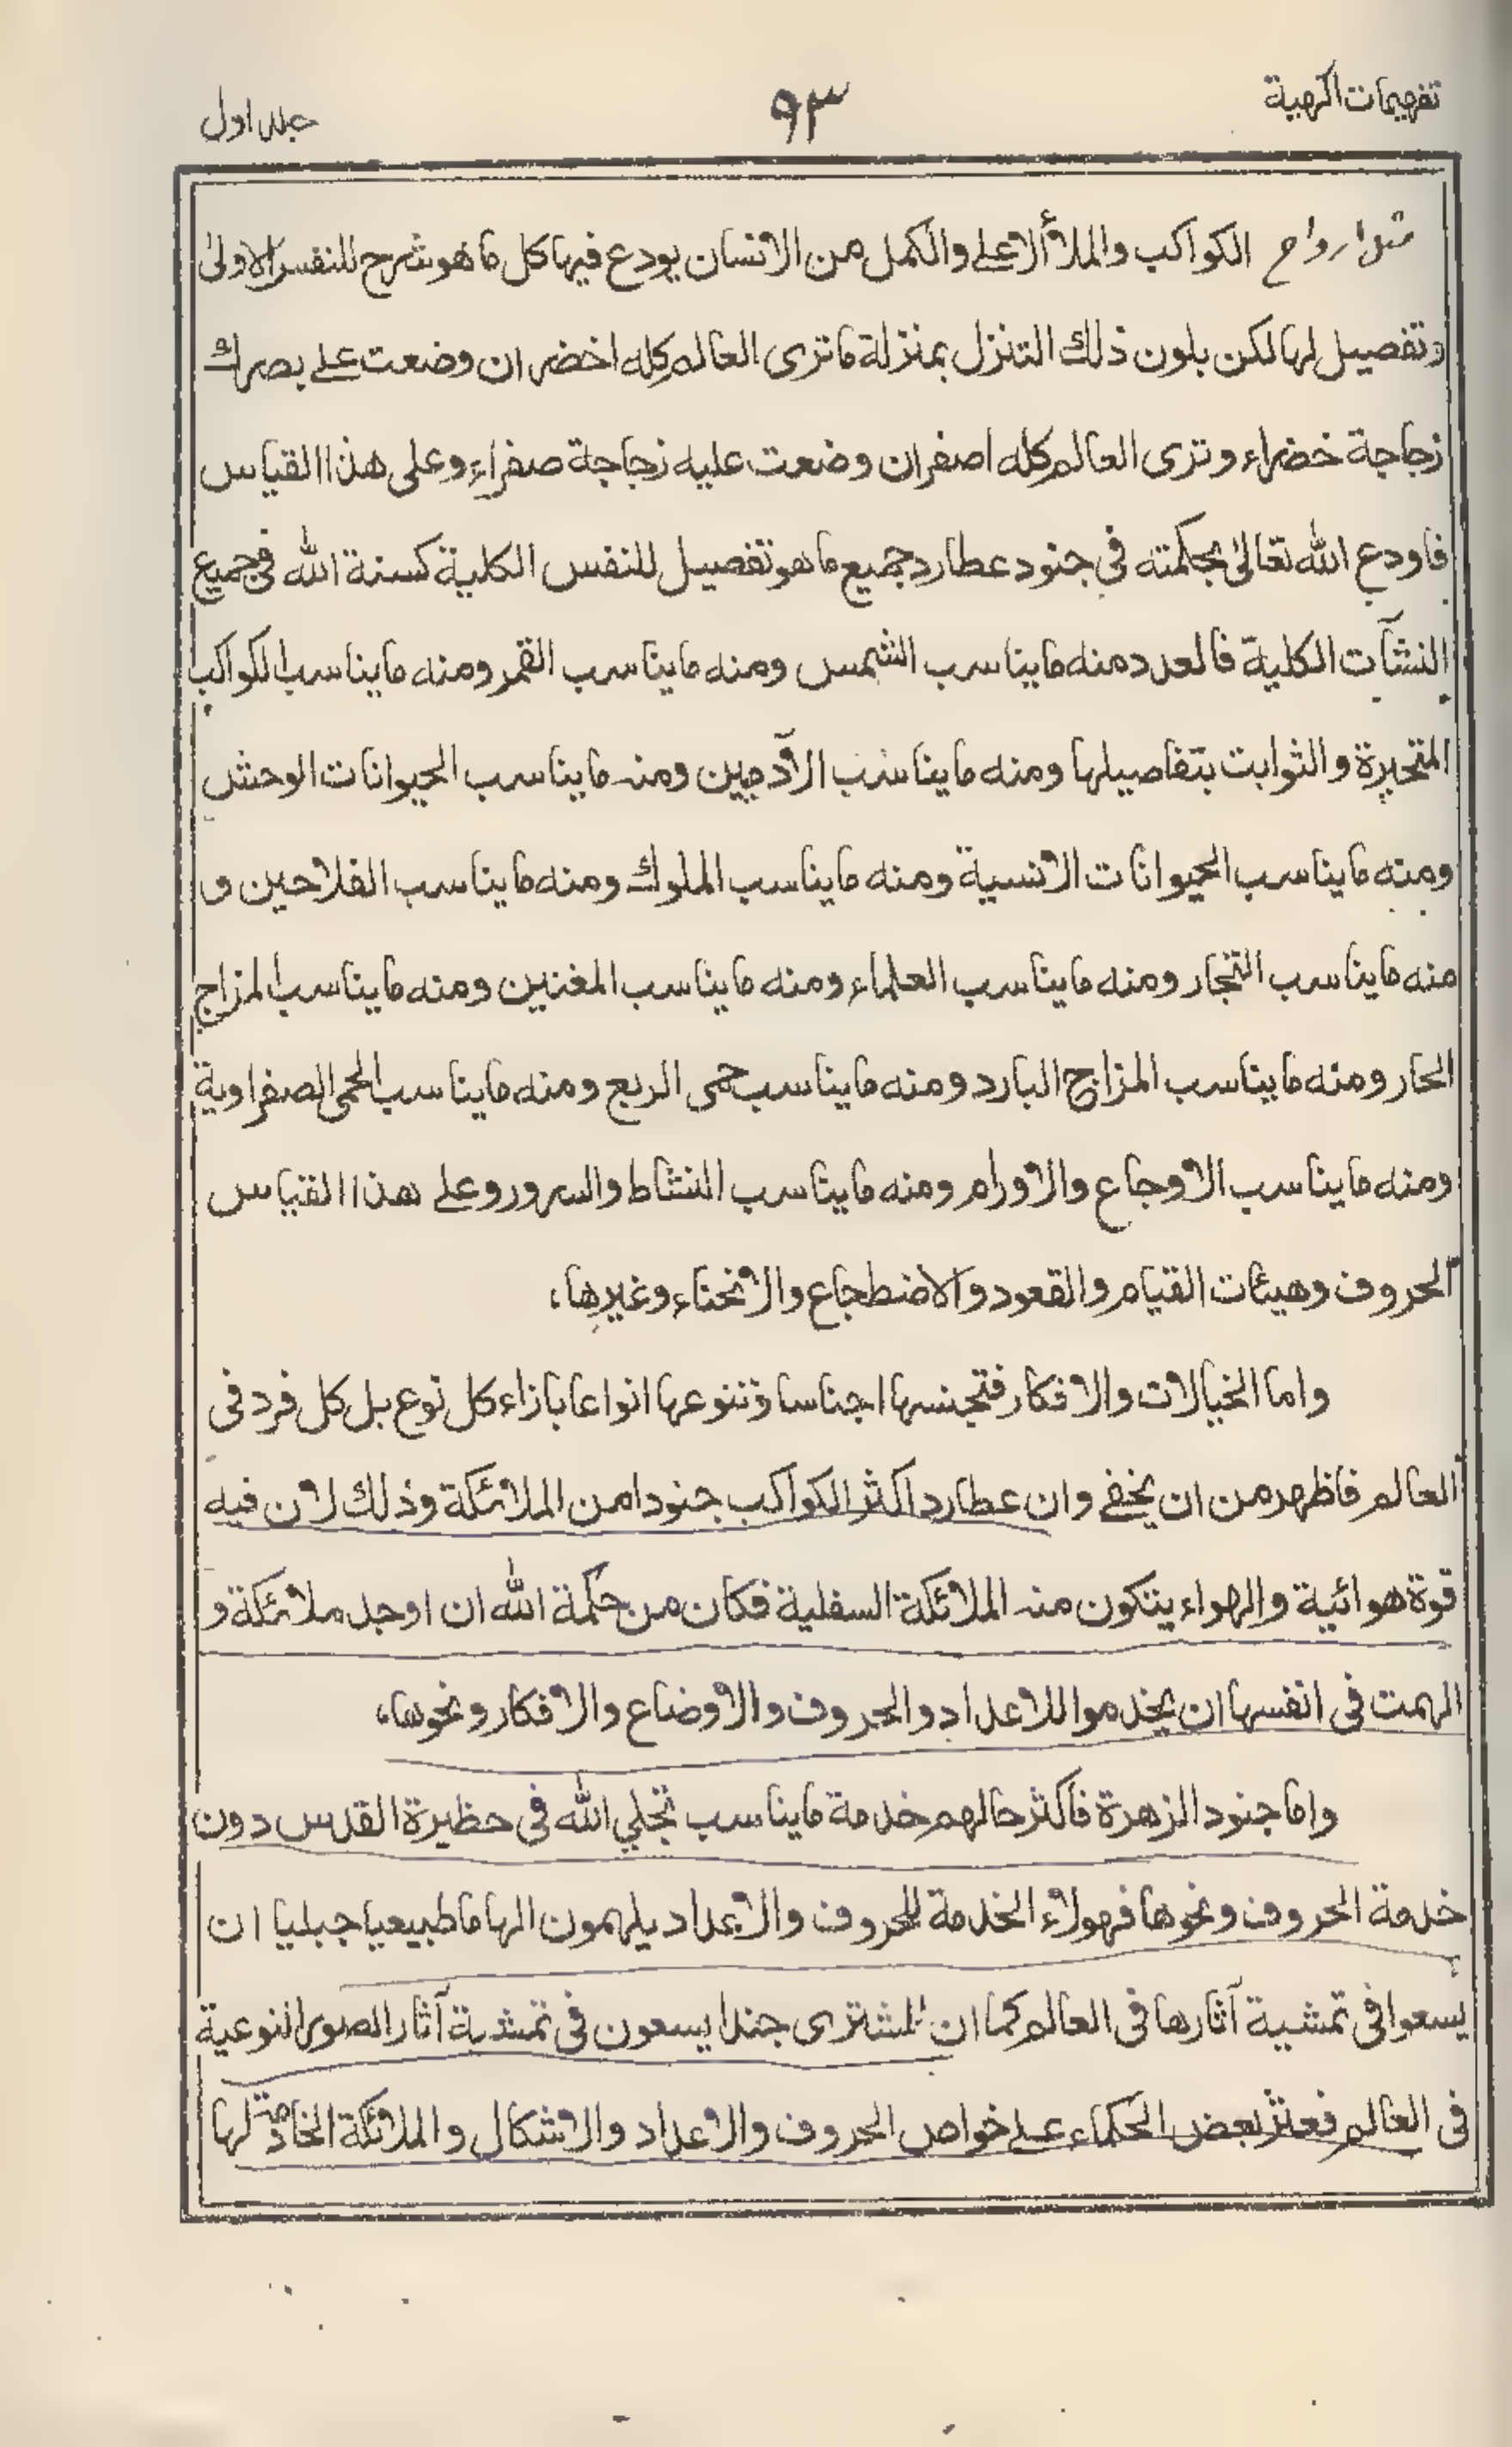 تفهيمات الهية
٩٣
جلد اول
مثل ارواح الكواكب والملأ الاعلے والكمل من الانسان يودع فيها كل ما هو شرح للنفس الاولىٰ
وتفصيل لها لكن بلون ذلك التنزل بمنزلة ما ترى العالم كله اخضر ان وضعت علے بصرك
زجاجة خضراء وترى العالم كله اصفر ان وضعت عليه زجاجة صفراء وعلى هذا القياس
فاودع الله تعالىٰ بحكمته في جنود عطارد جميع ما هو تفصيل للنفس الكلية كسنة الله في جميع
النشآت الكلية فالعدد منه ما يناسب الشمس ومنه ما يناسب القمر ومنه ما يناسب الكواكب
المتحيرة والثوابت بتفاصيلها ومنه ما يناسب الآدميين ومنه ما يناسب الحيوانات الوحش
ومنه ما يناسب الحيوانات الانسية ومنه ما يناسب الملوك ومنه ما يناسب الفلاحين و
منه ما يناسب التجار ومنه ما يناسب العلماء ومنه ما يناسب المغنين ومنه ما يناسب المزاج
الحار ومنه ما يناسب المزاج البارد ومنه ما يناسب حمى الربع ومنه ما يناسب الحمى الصفراوية
ومنه ما يناسب الاوجاع والاورام ومنه ما يناسب النشاط والسرور وعلے هذا القياس
الحروف وهيئات القيام والقعود والاضطجاع والانحناء وغيرها،
واما الخيالات والافكار فتجنسها اجناسا وتنوعها انواعا بازاء كل نوع بل كل فرد فى
العالم فاظهر من ان يخفے وان عطارد اكثر الكواكب جنودا من الملائكة وذلك لان فيه
قوة هوائية والهواء يتكون منه الملائكة السفلية فكان من حكمة الله ان اوجد ملائكة و
الهمت فى انفسها ان يخدموا للاعداد والحروف والاوضاع والافكار ونحوها،
واما جنود الزهرة فاكثر حالهم خدمة ما يناسب تجلي الله فى حظيرة القدس دون
خدمة الحروف ونحوها فهولاء الخدمة للحروف والاعداد يلهمون الهاما طبيعيا جبليا ان
يسعوا فى تمشية آثارها فى العالم كما ان للمشترى جندا يسعون فى تمشية آثار الصور النوعية
فى العالم فعثر بعض الحكماء علے خواص الحروف والاعداد والاشكال والملائكة الخادمة لها